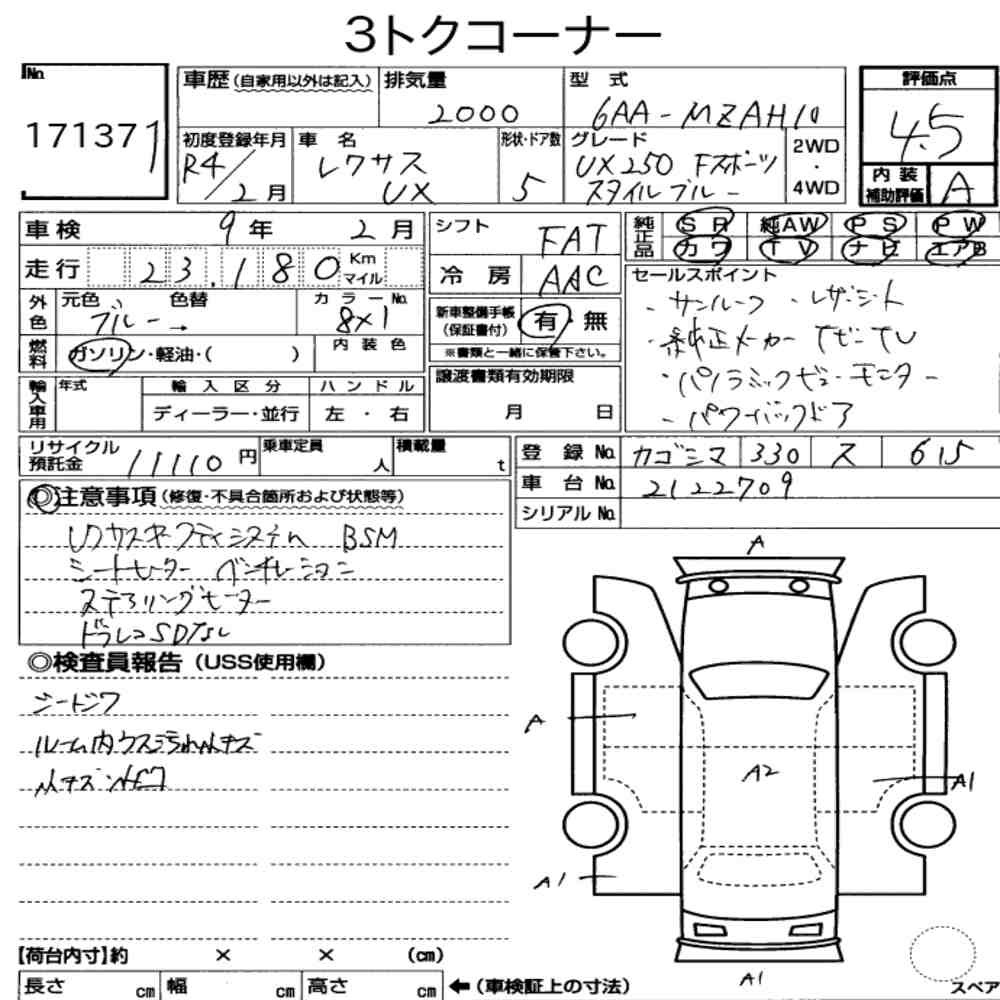 3トクコーナー
No.
171371
車歴(自家用以外は記入)
排気量
2000
型 式
6AA-MZAH10
評価点
4.5
初度登録年月
R4/2月
車 名
レクサス
UX
形状・ドア数
5
グレード
UX250 Fスポーツ
スタイルブルー
2WD
・
4WD
内 装
補助評価
A
車検 9年 2月
シフト
FAT
純正品
SR 純AW PS PW
カワ TV ナビ エアB
走行 23,180 Km
マイル
冷 房 AAC
セールスポイント
・サンルーフ ・レザーシート
・純正メーカーナビ-TV
・パノラミックビューモニター
・パワーバックドア
外色
元色 色替
ブルー→
カラーNo.
8X1
新車整備手帳
(保証書付)
有・無
※書類と一緒に保管下さい。
燃料
ガソリン・軽油・( )
内 装 色
譲渡書類有効期限
月 日
輸入車用
年式
輸 入 区 分
ハ ン ド ル
ディーラー・並行
左 ・ 右
リサイクル
預託金
11110円
乗車定員
人
積載量
t
登 録 No. カゴシマ 330 ス 615
車 台 No. 2122709
シリアル No.
◎注意事項(修復・不具合箇所および状態等)
レクサスセーフティシステム BSM
シートヒーター ベンチレーション
ステアリングヒーター
ドラレコSDなし
◎検査員報告(USS使用欄)
シートシワ
ルーム内ウス汚れ小キズ
小キズ
A
A
A2
A1
A1
A1
【荷台内寸】約 × × (cm)
長さ cm 幅 cm 高さ cm
←(車検証上の寸法)
スペア